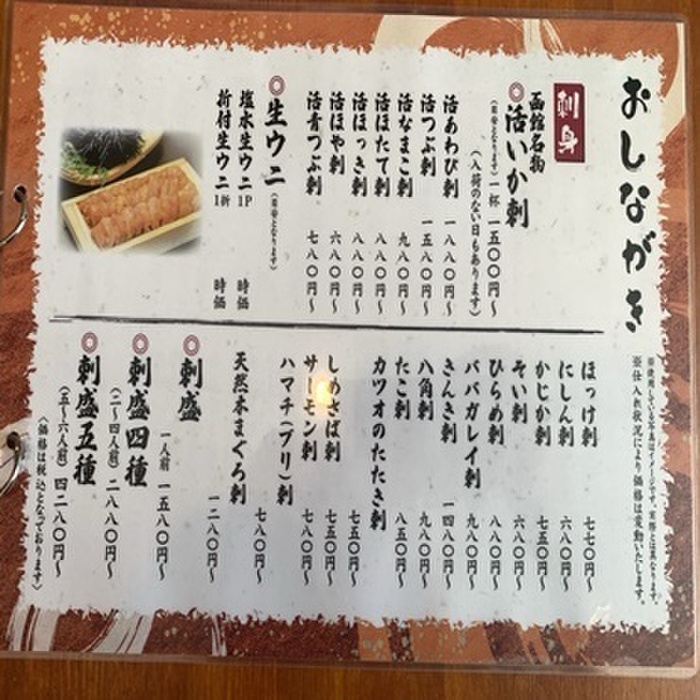 おしながき
※使用している写真はイメージです。実際とは異なります。
※仕入れ状況により価格は変動いたします。
刺身
函館名物
◎活いか刺
(目安となります)一杯 一五〇〇円〜
(入荷のない日もあります)
活あわび刺 一八八〇円〜
活つぶ刺 一五八〇円〜
活なまこ刺 九八〇円〜
活ほたて刺 八八〇円〜
活ほっき刺 八八〇円〜
活ほや刺 六八〇円〜
活青つぶ刺 七八〇円〜
◎生ウニ(目安となります)
塩水生ウニ1P 時価
折付生ウニ1折 時価
ほっけ刺 七七〇円〜
にしん刺 六八〇円〜
かじか刺 七五〇円〜
そい刺 六八〇円〜
ひらめ刺 八八〇円〜
ババガレイ刺 九八〇円〜
きんき刺 一四八〇円〜
八角刺 九八〇円〜
たこ刺 八五〇円〜
カツオのたたき刺 七五〇円〜
しめさば刺 七五〇円〜
サーモン刺 七八〇円〜
ハマチ(ブリ)刺 七八〇円〜
天然本まぐろ刺 一二八〇円〜
◎刺盛 一人前 一五八〇円〜
◎刺盛四種
(二〜四人前) 二八八〇円〜
◎刺盛五種
(五〜六人前) 四二八〇円〜
(価格は税込となっております)